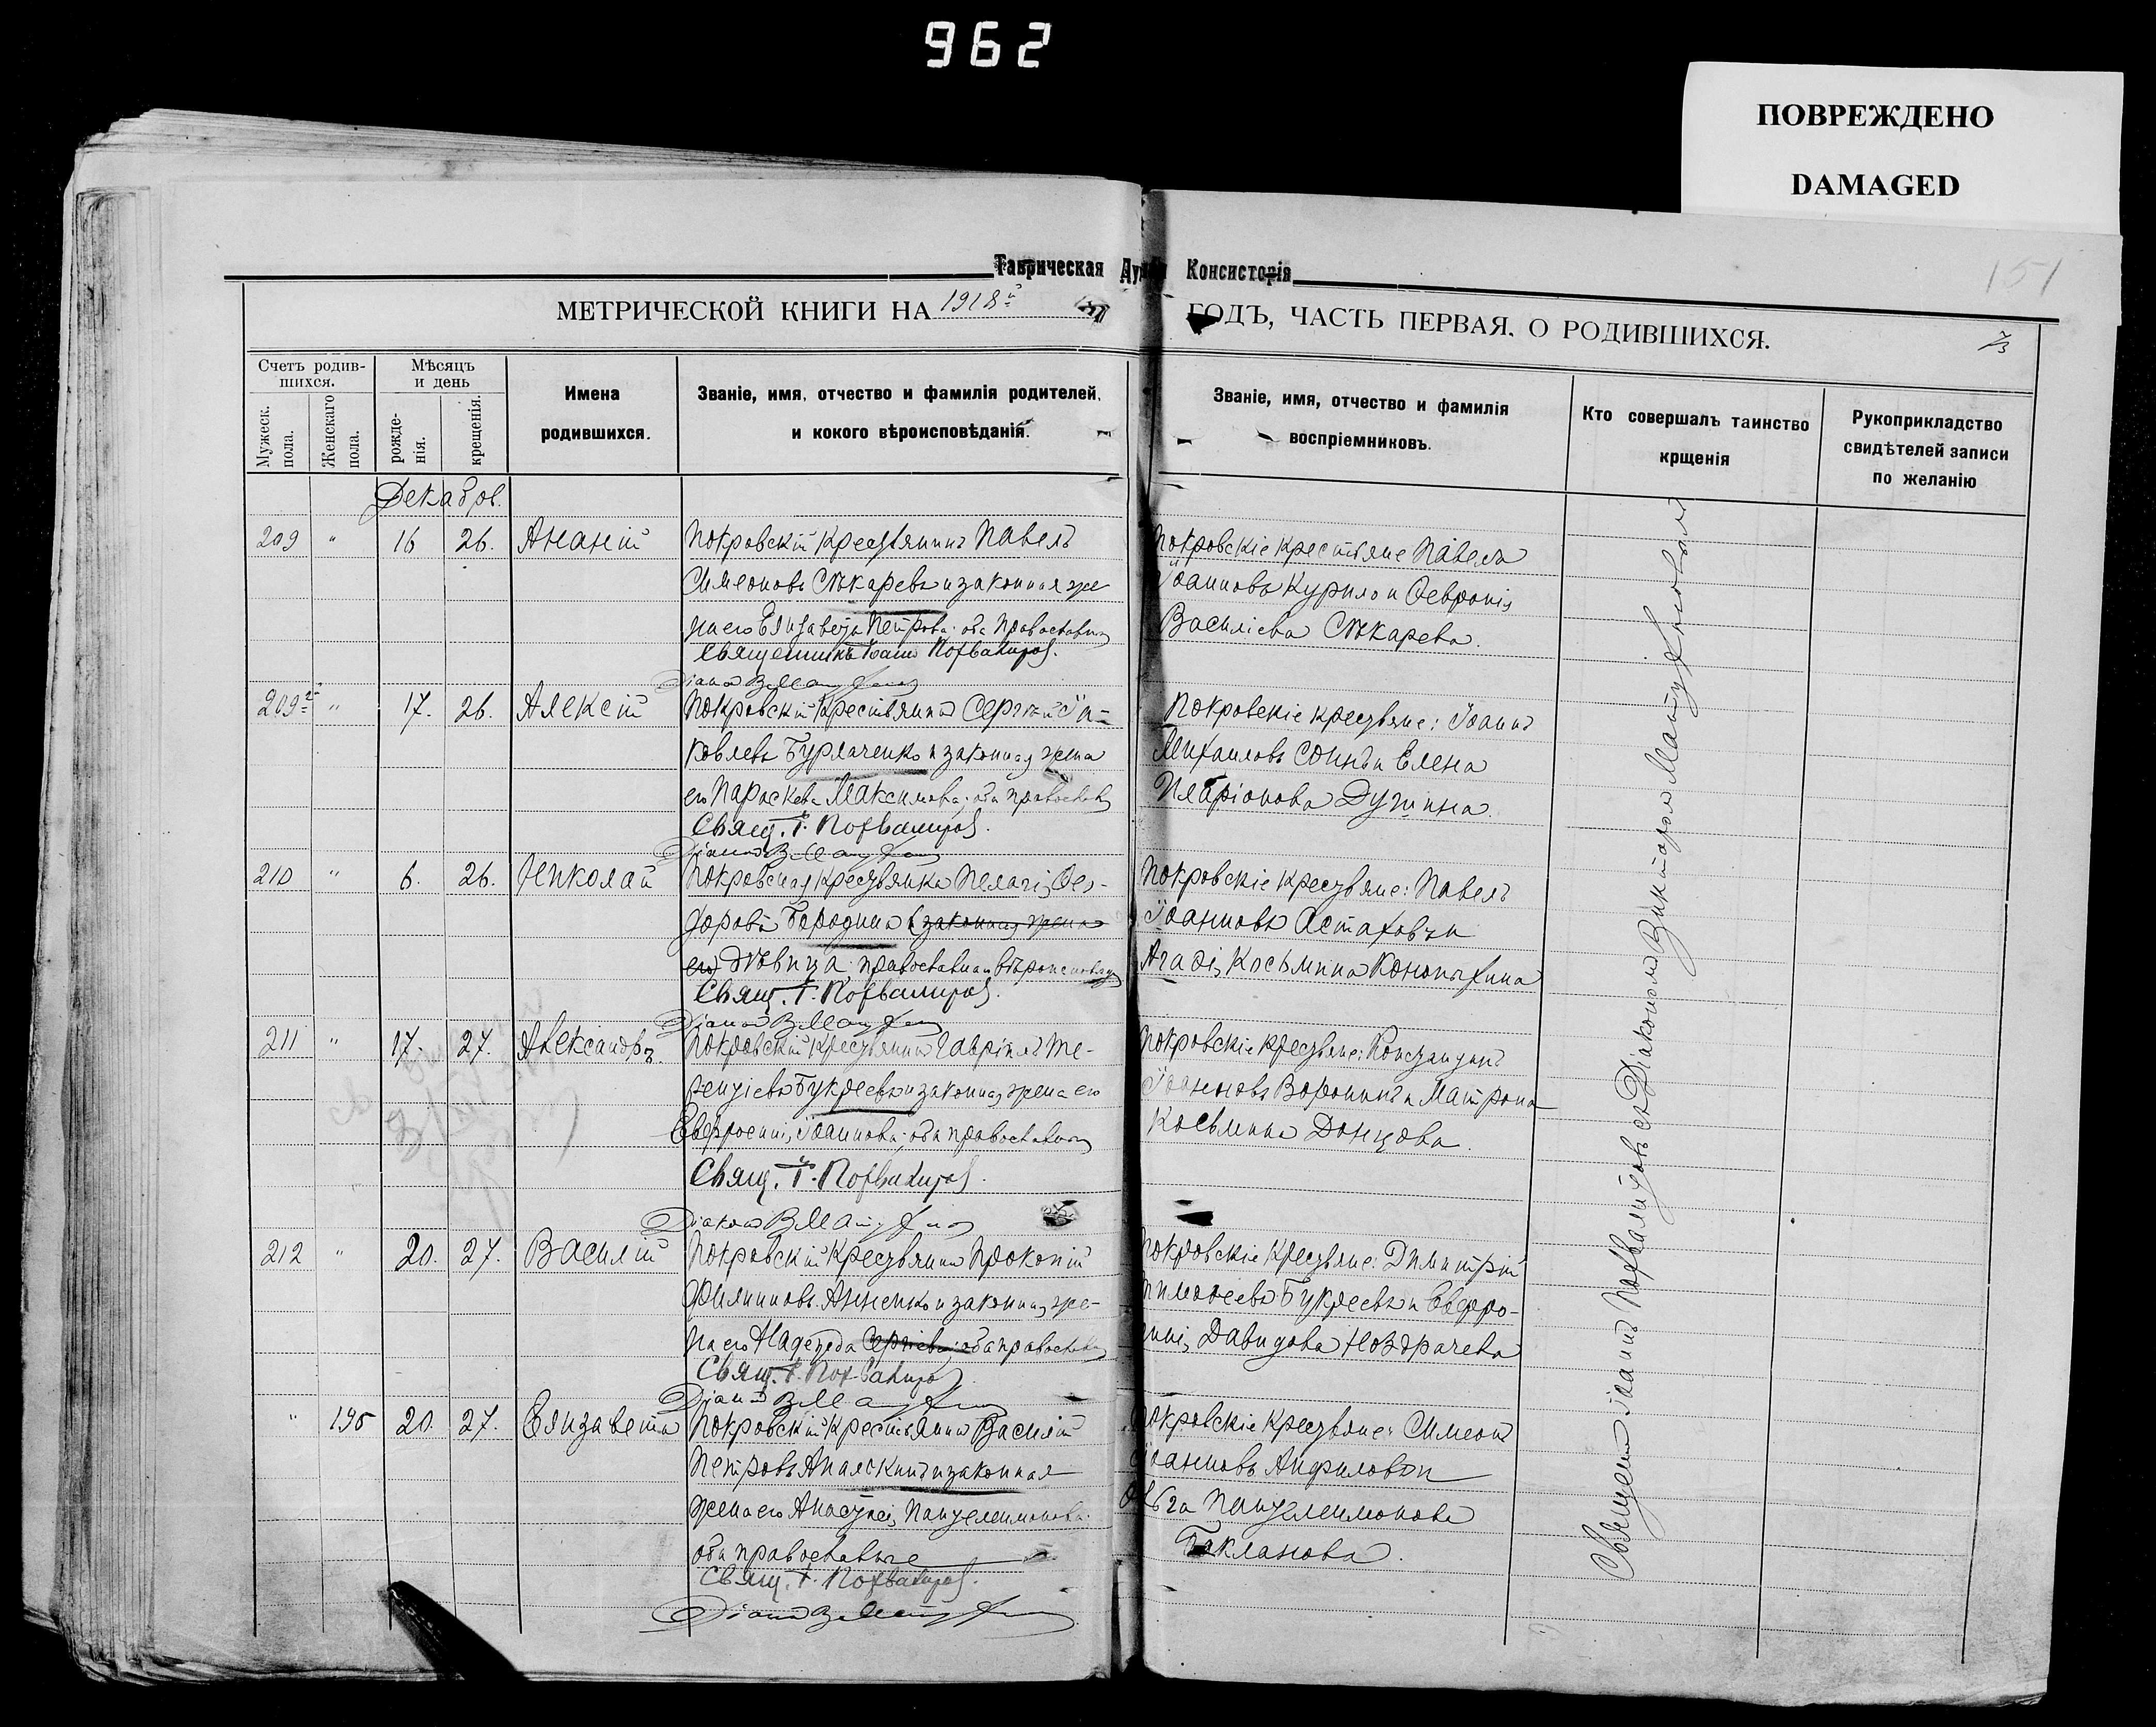 962
ПОВРЕЖДЕНО
DAMAGED
Таврическая Духов Консисторія
151
МЕТРИЧЕСКОЙ КНИГИ НА 1918й ГОДЪ, ЧАСТЬ ПЕРВАЯ, О РОДИВШИХСЯ.
Счетъ родив-
шихся.
Мужеск.
пола.
Женскаго
пола.
Мѣсяцъ
и день
рожде-
нія.
крещенія.
Имена
родившихся.
Званіе, имя, отчество и фамилія родителей,
и кокого вѣроисповѣданія.
Званіе, имя, отчество и фамилія
воспріемниковъ.
Кто совершалъ таинство
крщенія
Рукоприкладство
свидѣтелей записи
по желанію
Декабрь.
209 " 16 26. Ананій
Покровскій крестьянинъ Павелъ
Симеоновъ Сѣкаревъ и законная же
на его Елизавета Петрова: оба православны
Священникъ Іоаннъ Похвалитовъ.
Покровскіе крестьяне Павелъ
Іоанновъ Курило и Февронія
Василіева Сѣкарева.
209 " 17. 26. Алексій
Покровскій крестьянинъ Сергій Іа-
ковлевъ Бурлаченко и законная жена
его Параскева Максимова; оба православн
Свящ. І. Похвалитовъ.
Покровскіе крестьяне: Іоаннъ
Михаиловъ Соинъ и Елена
Иларіонова Душина.
210 " 6. 26. Николай
Покровская крестьянка Пелагія Фео-
дорова Бородина (законная жена
его) дѣвица православнаго вѣроисповѣд
Свящ. І. Похвалитовъ.
Покровскіе крестьяне: Павелъ
Іоанновъ Астаховъ и
Агадія Косьмина Конопыхина
211 " 17. 27. Александръ.
Покровскій крестьянинъ Гавріилъ Те-
рентіевъ Букреевъ и законная жена его
Евфросинія Іоаннова; оба православны
Свящ. І. Похвалитовъ.
Покровскіе крестьяне: Константинъ
Іоанновъ Воронинъ и Матрона
Косьмина Донцова.
212 " 20. 27. Василій
Покровскій крестьянинъ Прокопій
Филипповъ Анненко и законная же-
на его Надежда Сергіева; оба православны
Свящ. І. Похвалитовъ
Покровскіе крестьяне: Димитрій
Тимофеевъ Букреевъ и Евфро-
синія Давидова Ноздрачева
" 195 20. 27. Елизавета
Покровскій крестьянинъ Василій
Петровъ Апалскинъ и законная
жена его Анастасія Пантелеимонова.
оба православные
Свящ. І. Похвалитовъ.
Покровскіе крестьяне: Симеонъ
Іоанновъ Анфиловъ и
Ольга Пантелеимонова
Бакланова.
Священникъ Іоаннъ Похвалитовъ съ Діакономъ Викторомъ